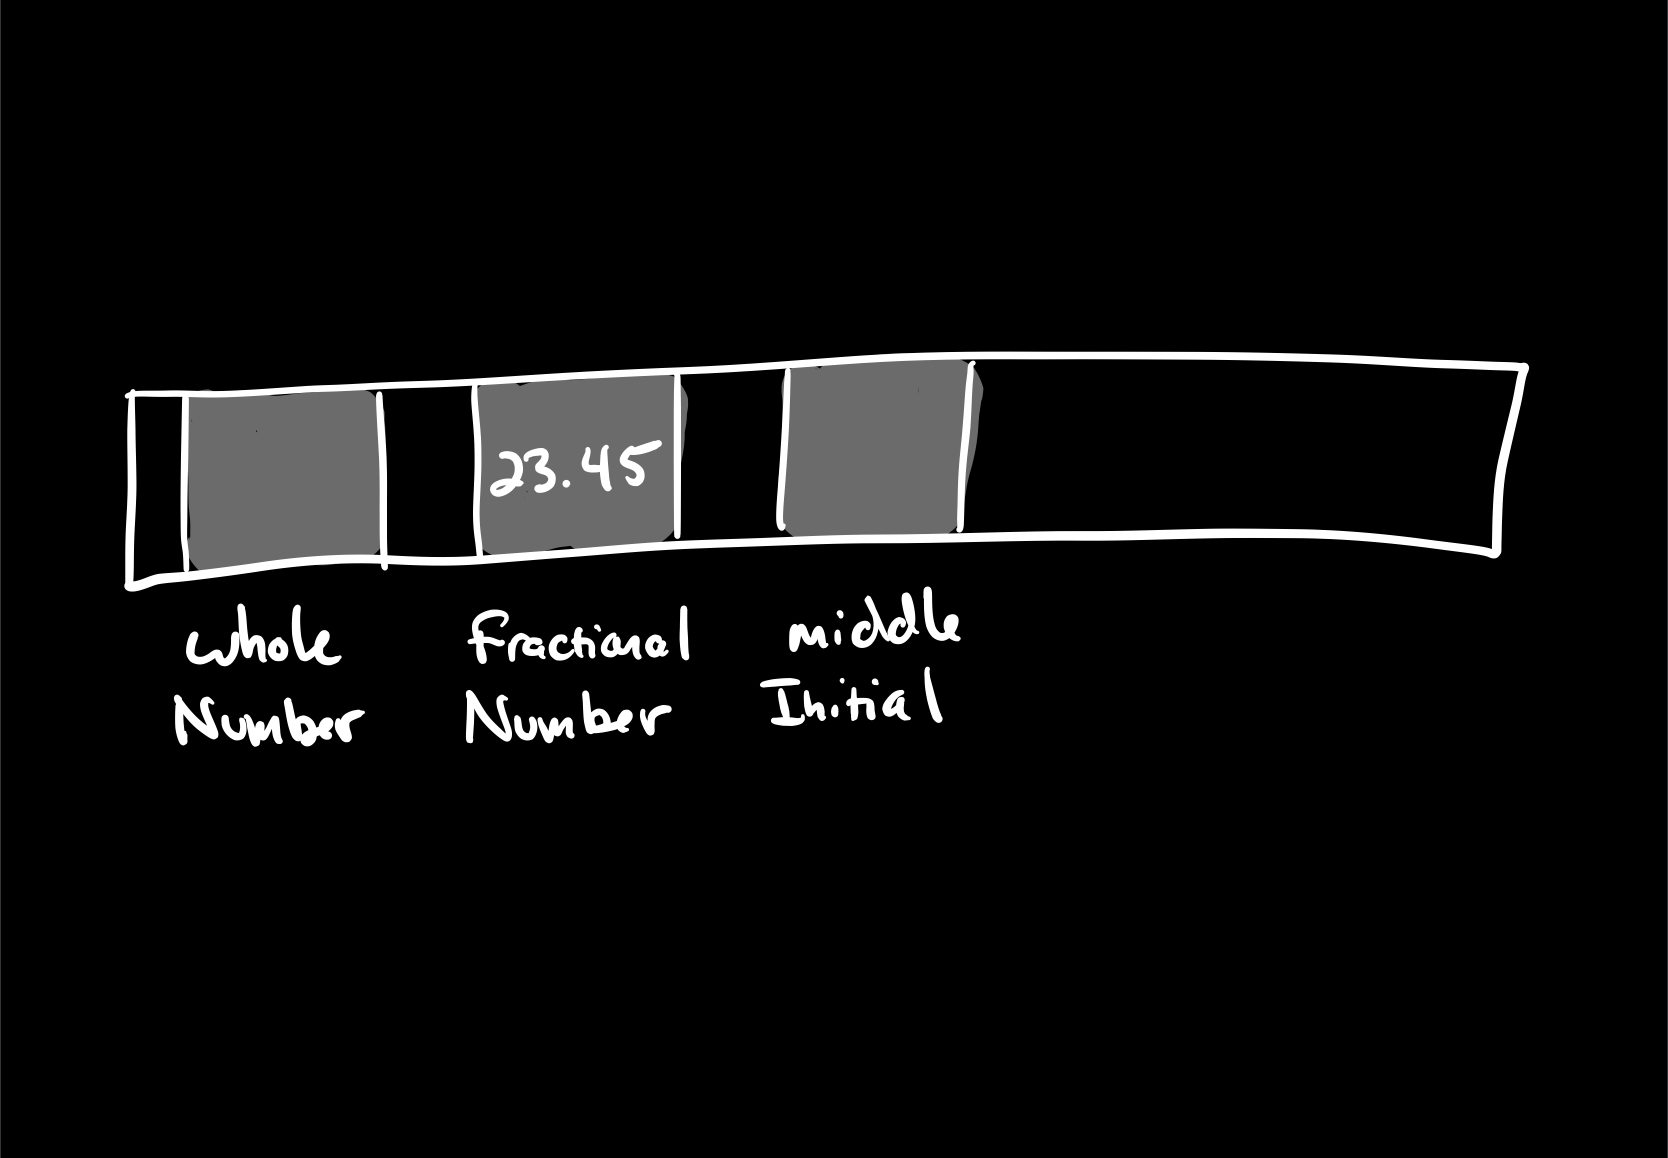 23.45
whole
Number
fractional
Number
middle
Initial